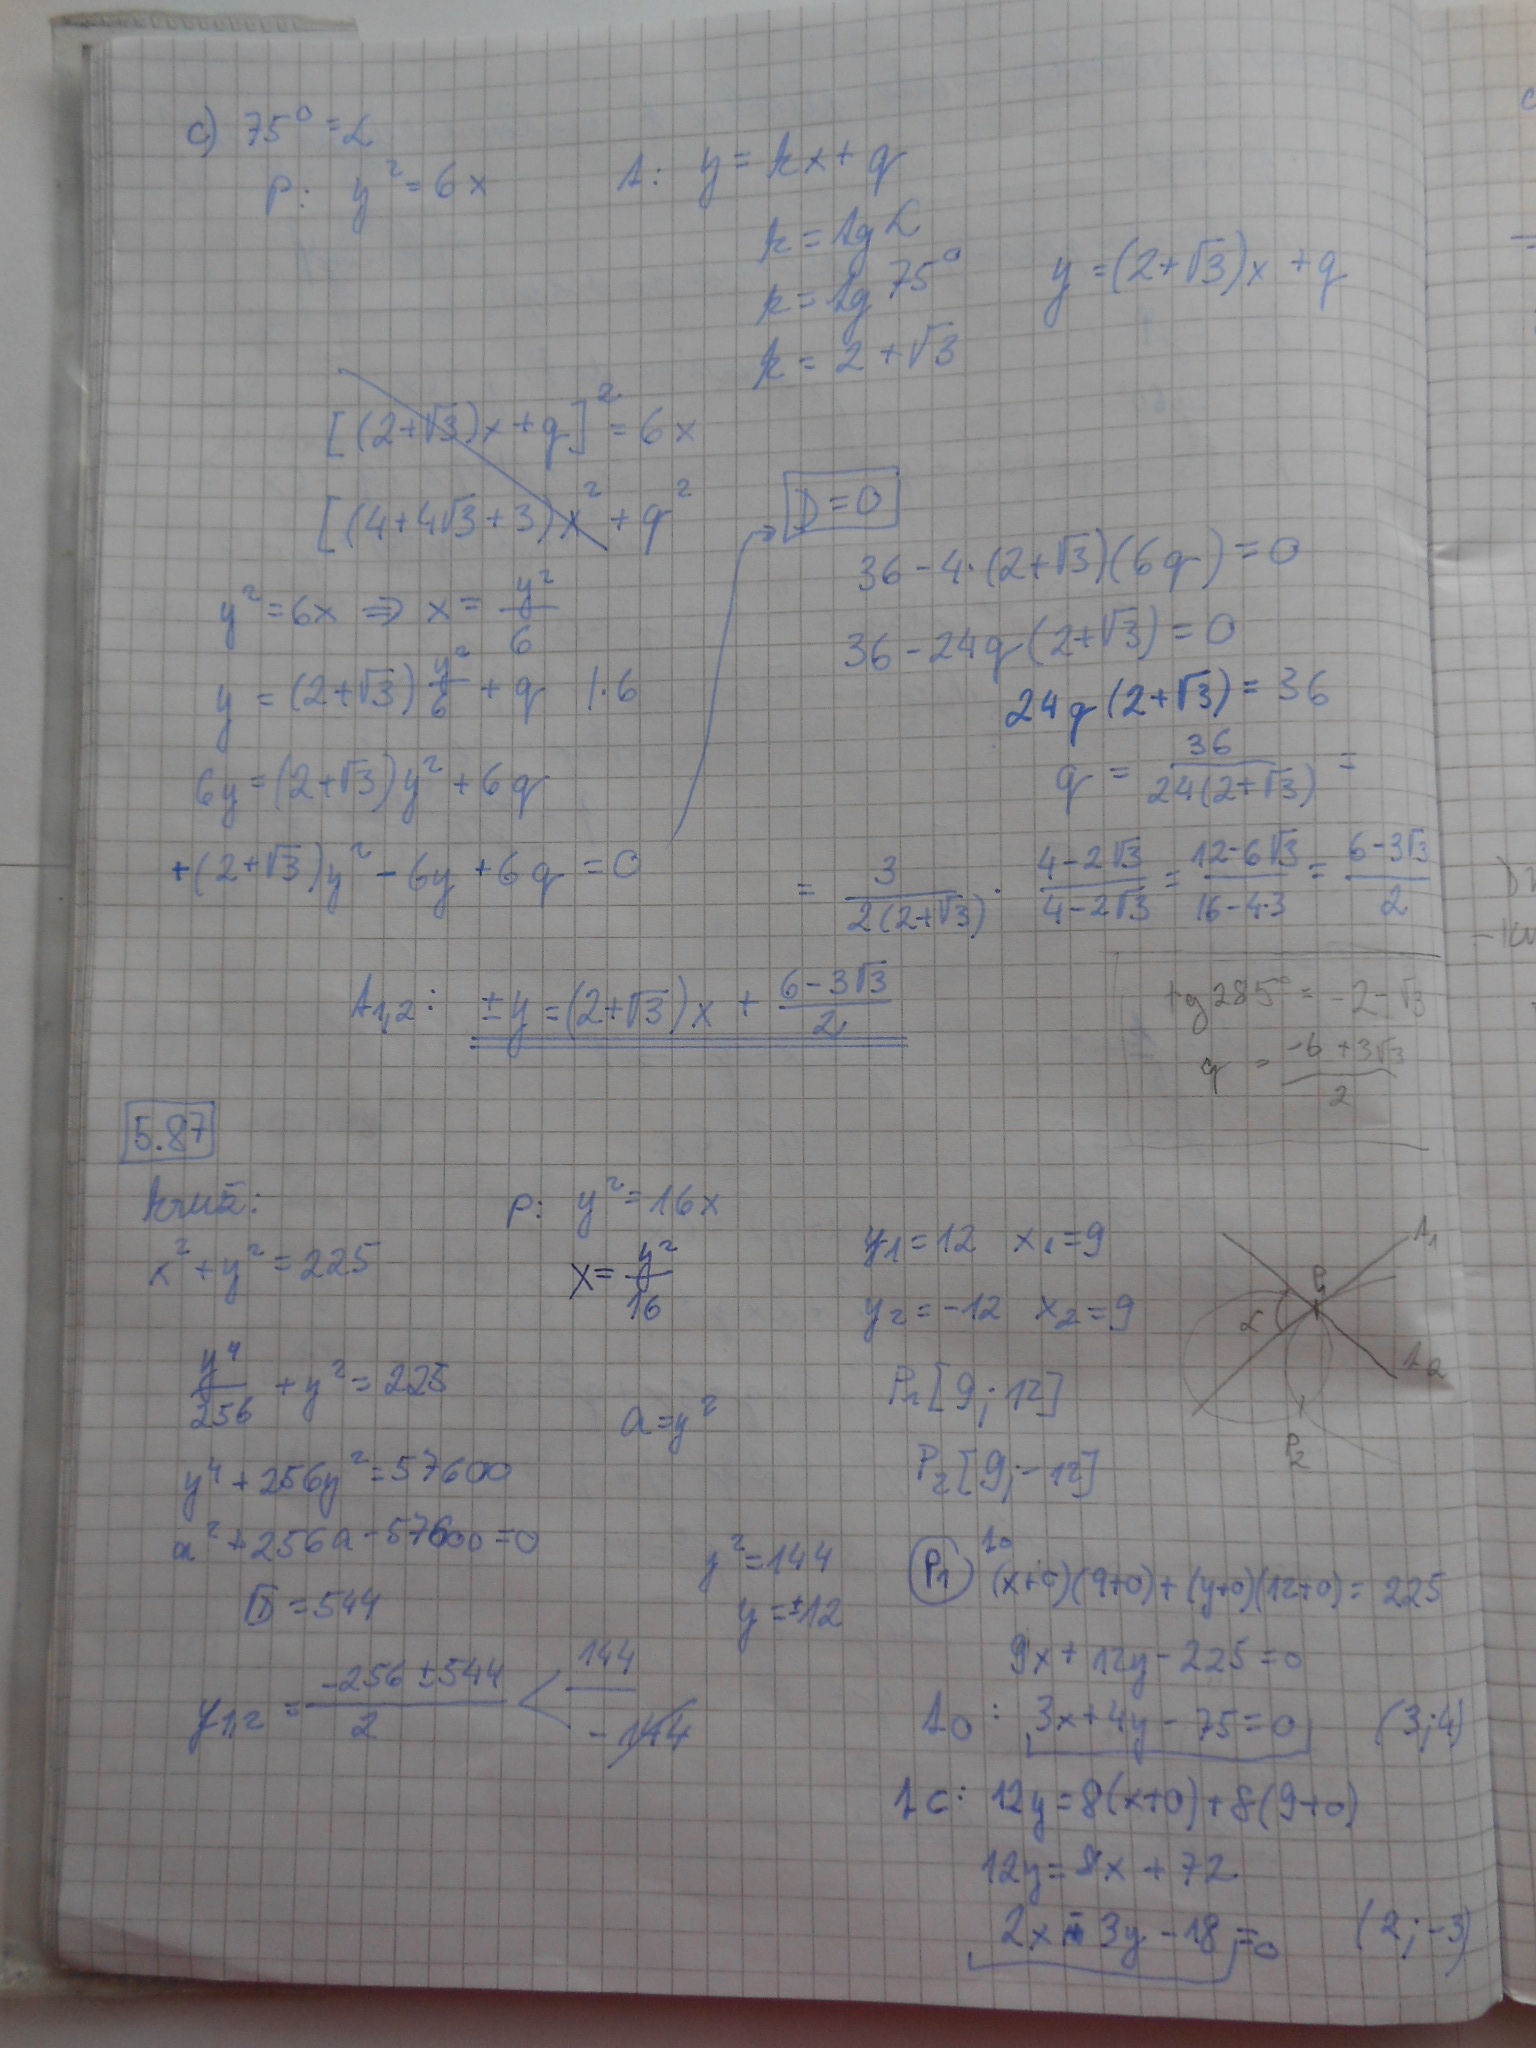 c) 75° = α
p: y² = 6x
t: y = kx + q
k = tg α
k = tg 75°
k = 2 + √3
y = (2+√3)x + q
[(2+√3)x + q]² = 6x
[(4+4√3+3)x² + q²
y² = 6x ⇒ x = y²/6
y = (2+√3) y²/6 + q /·6
6y = (2+√3)y² + 6q
+(2+√3)y² - 6y + 6q = 0
D = 0
36 - 4·(2+√3)(6q) = 0
36 - 24q(2+√3) = 0
24q(2+√3) = 36
q = 36/24(2+√3) =
= 3/2(2+√3) · 4-2√3/4-2√3 = 12-6√3/16-4·3 = 6-3√3/2
t₁,₂: ±y = (2+√3)x + 6-3√3/2
tg 285° = -2-√3
q = -6+3√3/2
5.87
x² + y² = 225
y⁴/256 + y² = 225
y⁴ + 256y² = 57600
a² + 256a - 57600 = 0
√D = 544
y₁,₂ = -256 ± 544/2 < 144
-144
p: y² = 16x
x = y²/16
a = y²
y² = 144
y = ±12
y₁ = 12 x₁ = 9
y₂ = -12 x₂ = 9
P₁[9; 12]
P₂[9; -12]
t₁
P₁
α
t₂
P₂
P₁ t₀ (x+0)(9+0) + (y+0)(12+0) = 225
9x + 12y - 225 = 0
t₀: 3x + 4y - 75 = 0 (3; 4)
12y = 8(x+0) + 8(9+0)
12y = 8x + 72
2x - 3y - 18 = 0 (2; -3)